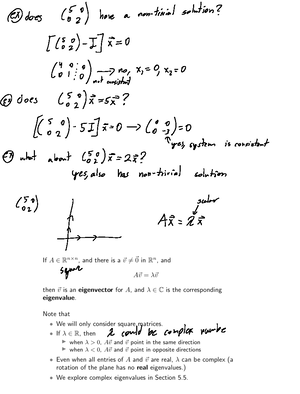 ex) does (5 0 / 0 2) have a non-trivial solution?
[(5 0 / 0 2) - I] x⃗ = 0
(4 0 ⋮ 0 / 0 1 ⋮ 0) → no, x₁ = 0, x₂ = 0
not consistent
ex) does (5 0 / 0 2) x⃗ = 5x⃗?
[(5 0 / 0 2) - 5I] x⃗ = 0 → (0 0 / 0 -3) = 0
yes, system is consistent
what about (5 0 / 0 2) x⃗ = 2x⃗?
yes, also has non-trivial solution
(5 0 / 0 2)
scalar
Ax⃗ = λx⃗
If A ∈ ℝⁿˣⁿ, and there is a v⃗ ≠ 0⃗ in ℝⁿ, and
square
Av⃗ = λv⃗
then v⃗ is an eigenvector for A, and λ ∈ ℂ is the corresponding
eigenvalue.
Note that
• We will only consider square matrices.
• If λ ∈ ℝ, then λ could be complex number
▶ when λ > 0, Av⃗ and v⃗ point in the same direction
▶ when λ < 0, Av⃗ and v⃗ point in opposite directions
• Even when all entries of A and v⃗ are real, λ can be complex (a
rotation of the plane has no real eigenvalues.)
• We explore complex eigenvalues in Section 5.5.